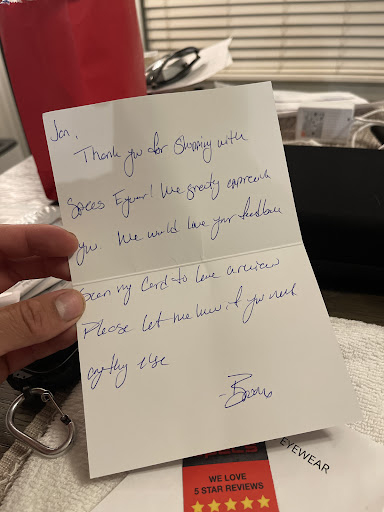 Jon,
Thank you for Shopping with
Specs Eyewear! We greatly appreciate
you. We would love your feedback
Scan my Card to leave a review
Please let me know if you need
anything else
EYEWEAR
WE LOVE
5 STAR REVIEWS